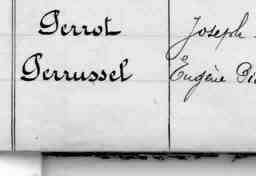 Perrot Joseph
Perrussel Eugène